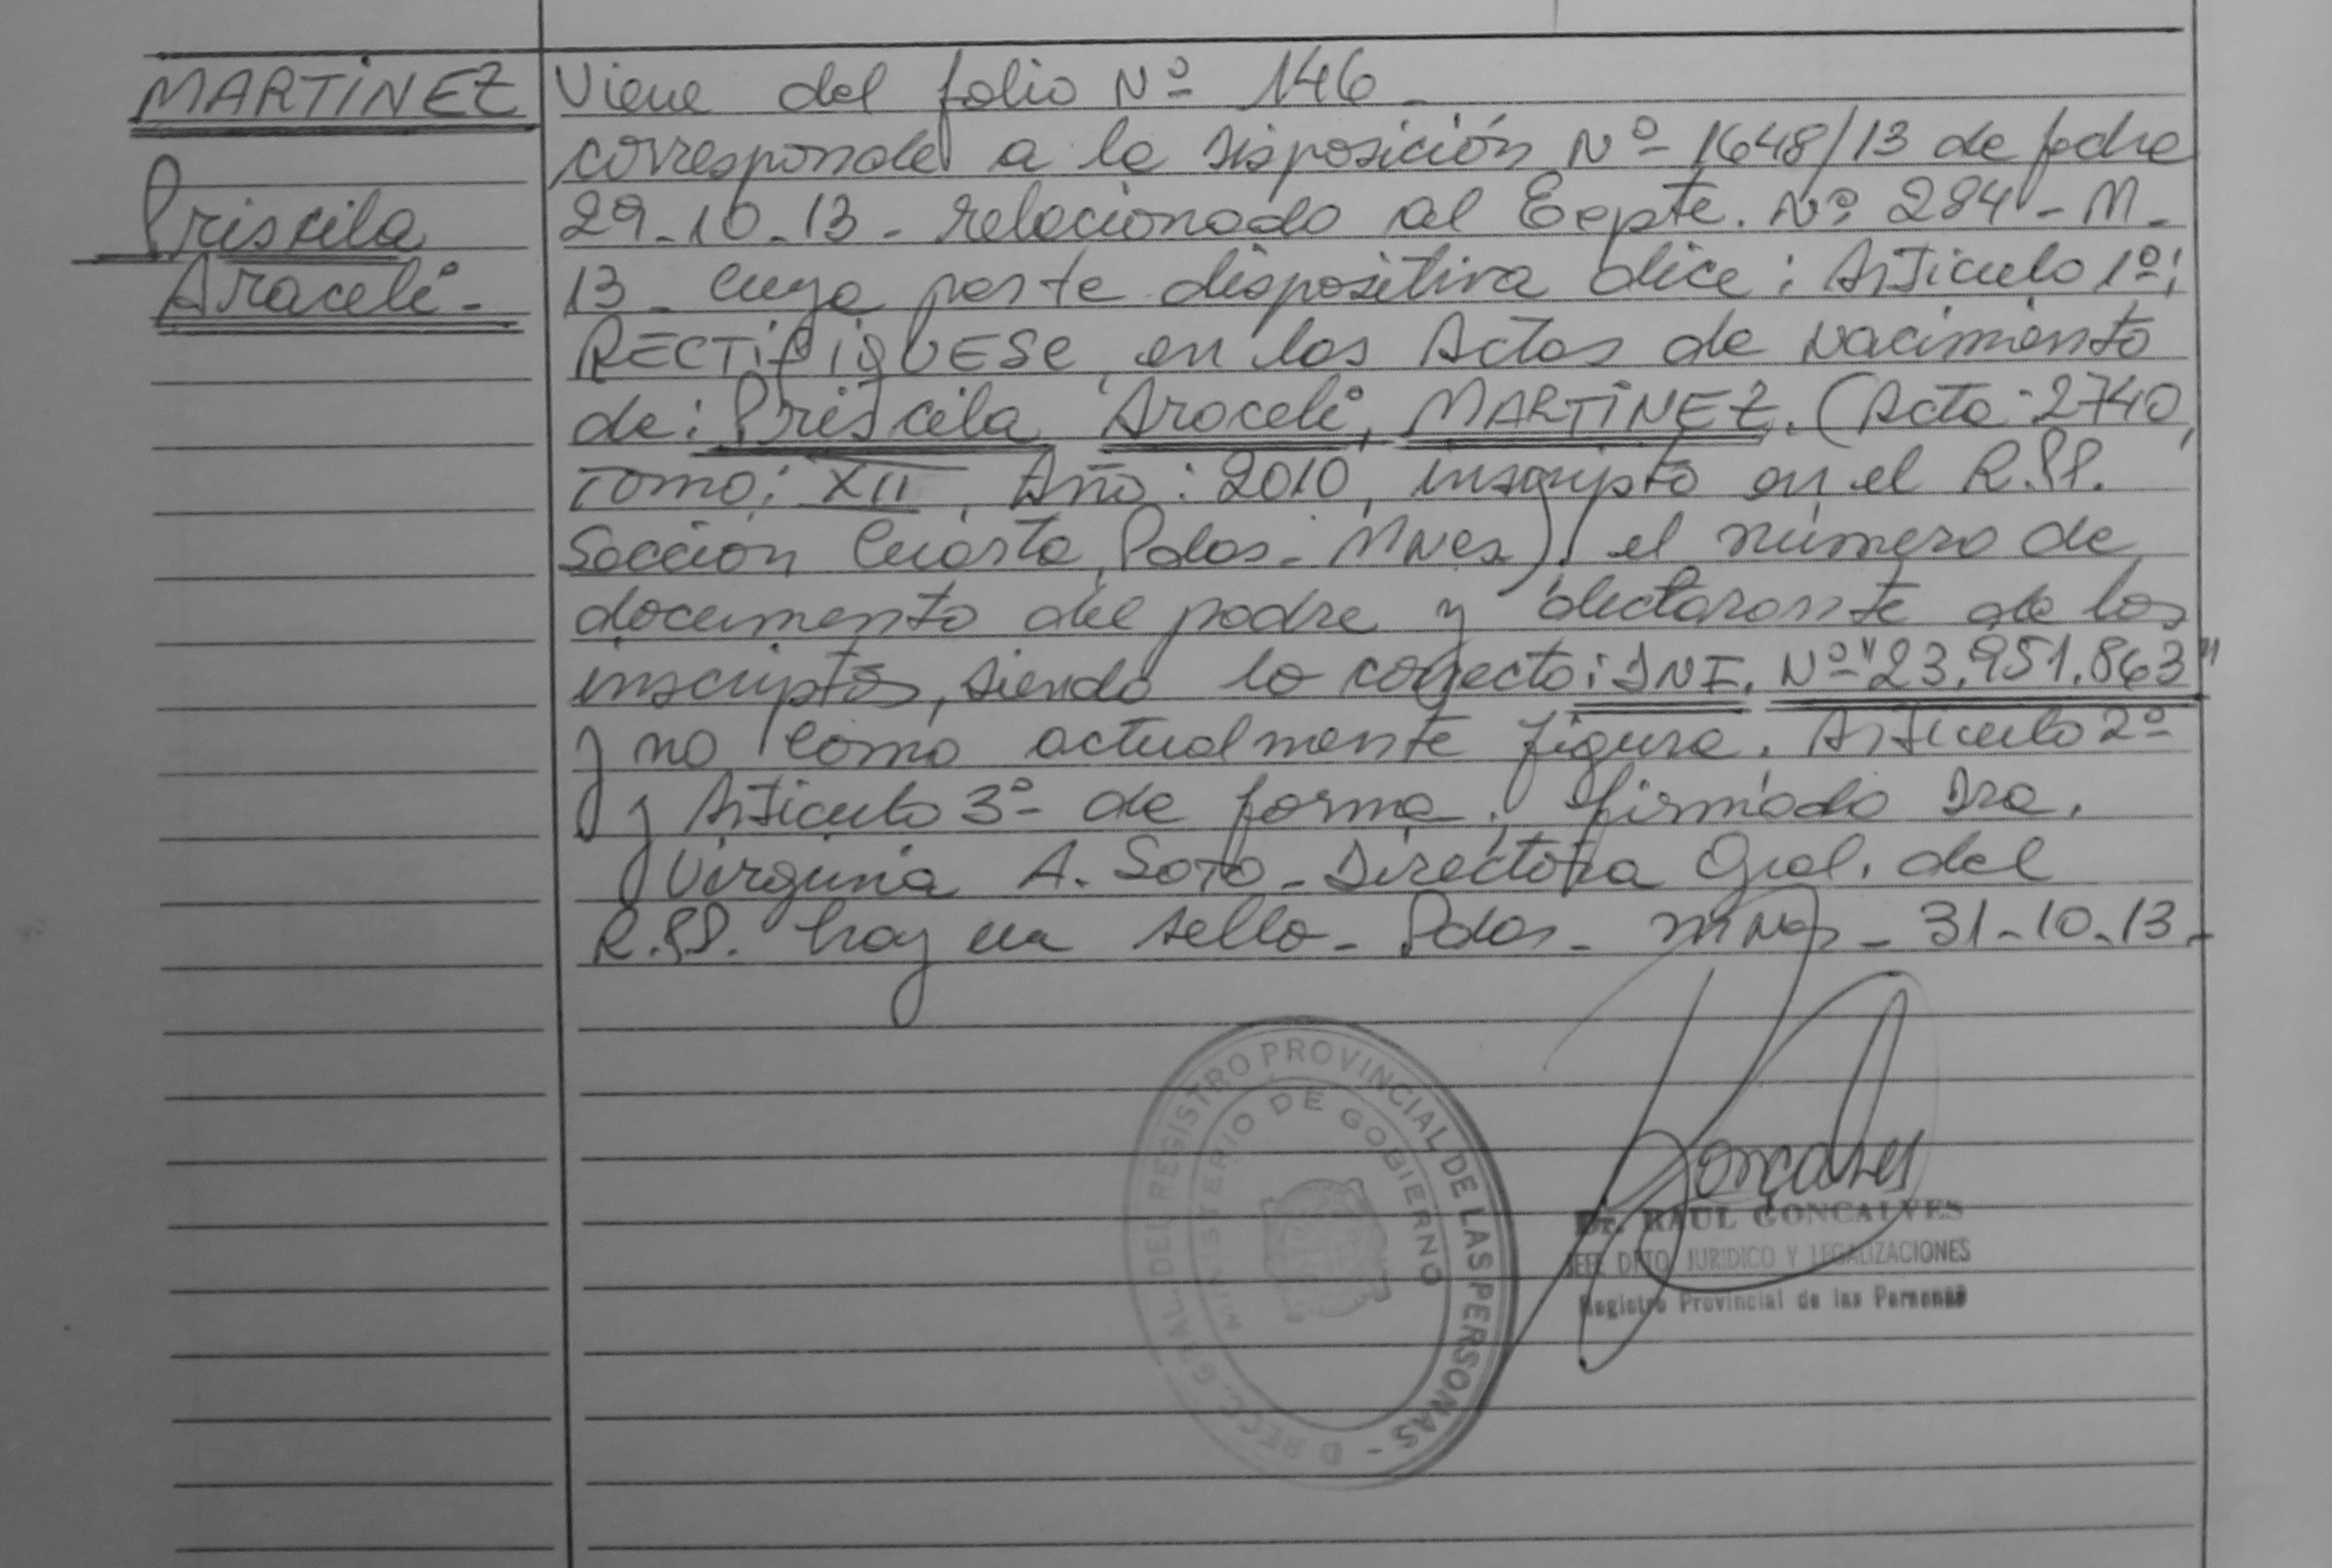 MARTINEZ
Priscila
Araceli.-
Viene del folio Nº 146-
corresponde a la disposición Nº 1648/13 de fecha
29-10-13- relacionado al Eepte. Nº 284-M-
13- cuya parte dispositiva dice: Artículo 1º:
RECTIFIQUESE, en las Actas de nacimiento
de: Priscila Araceli, MARTINEZ. (Acta: 2740,
Tomo: XII, Año: 2010, inscripto en el R.PP.
Sección Cuarta, Pdas.- Mnes), el número de
documento del padre y declarante de los
inscriptos, siendo lo correcto: DNI. Nº "23.951.863"
y no como actualmente figura. Artículo 2º
y Artículo 3º- de forma. firmado Dra.
Virginia A. Soto- Directora Gral. del
R.PP. hay un sello- Pdas- Mnes- 31-10-13-
DIRECC. GRAL. DEL REGISTRO PROVINCIAL DE LAS PERSONAS -
MINISTERIO DE GOBIERNO
Goncalves
Dr. RAUL GONCALVES
JEFE DPTO. JURIDICO Y LEGALIZACIONES
Registro Provincial de las Personas